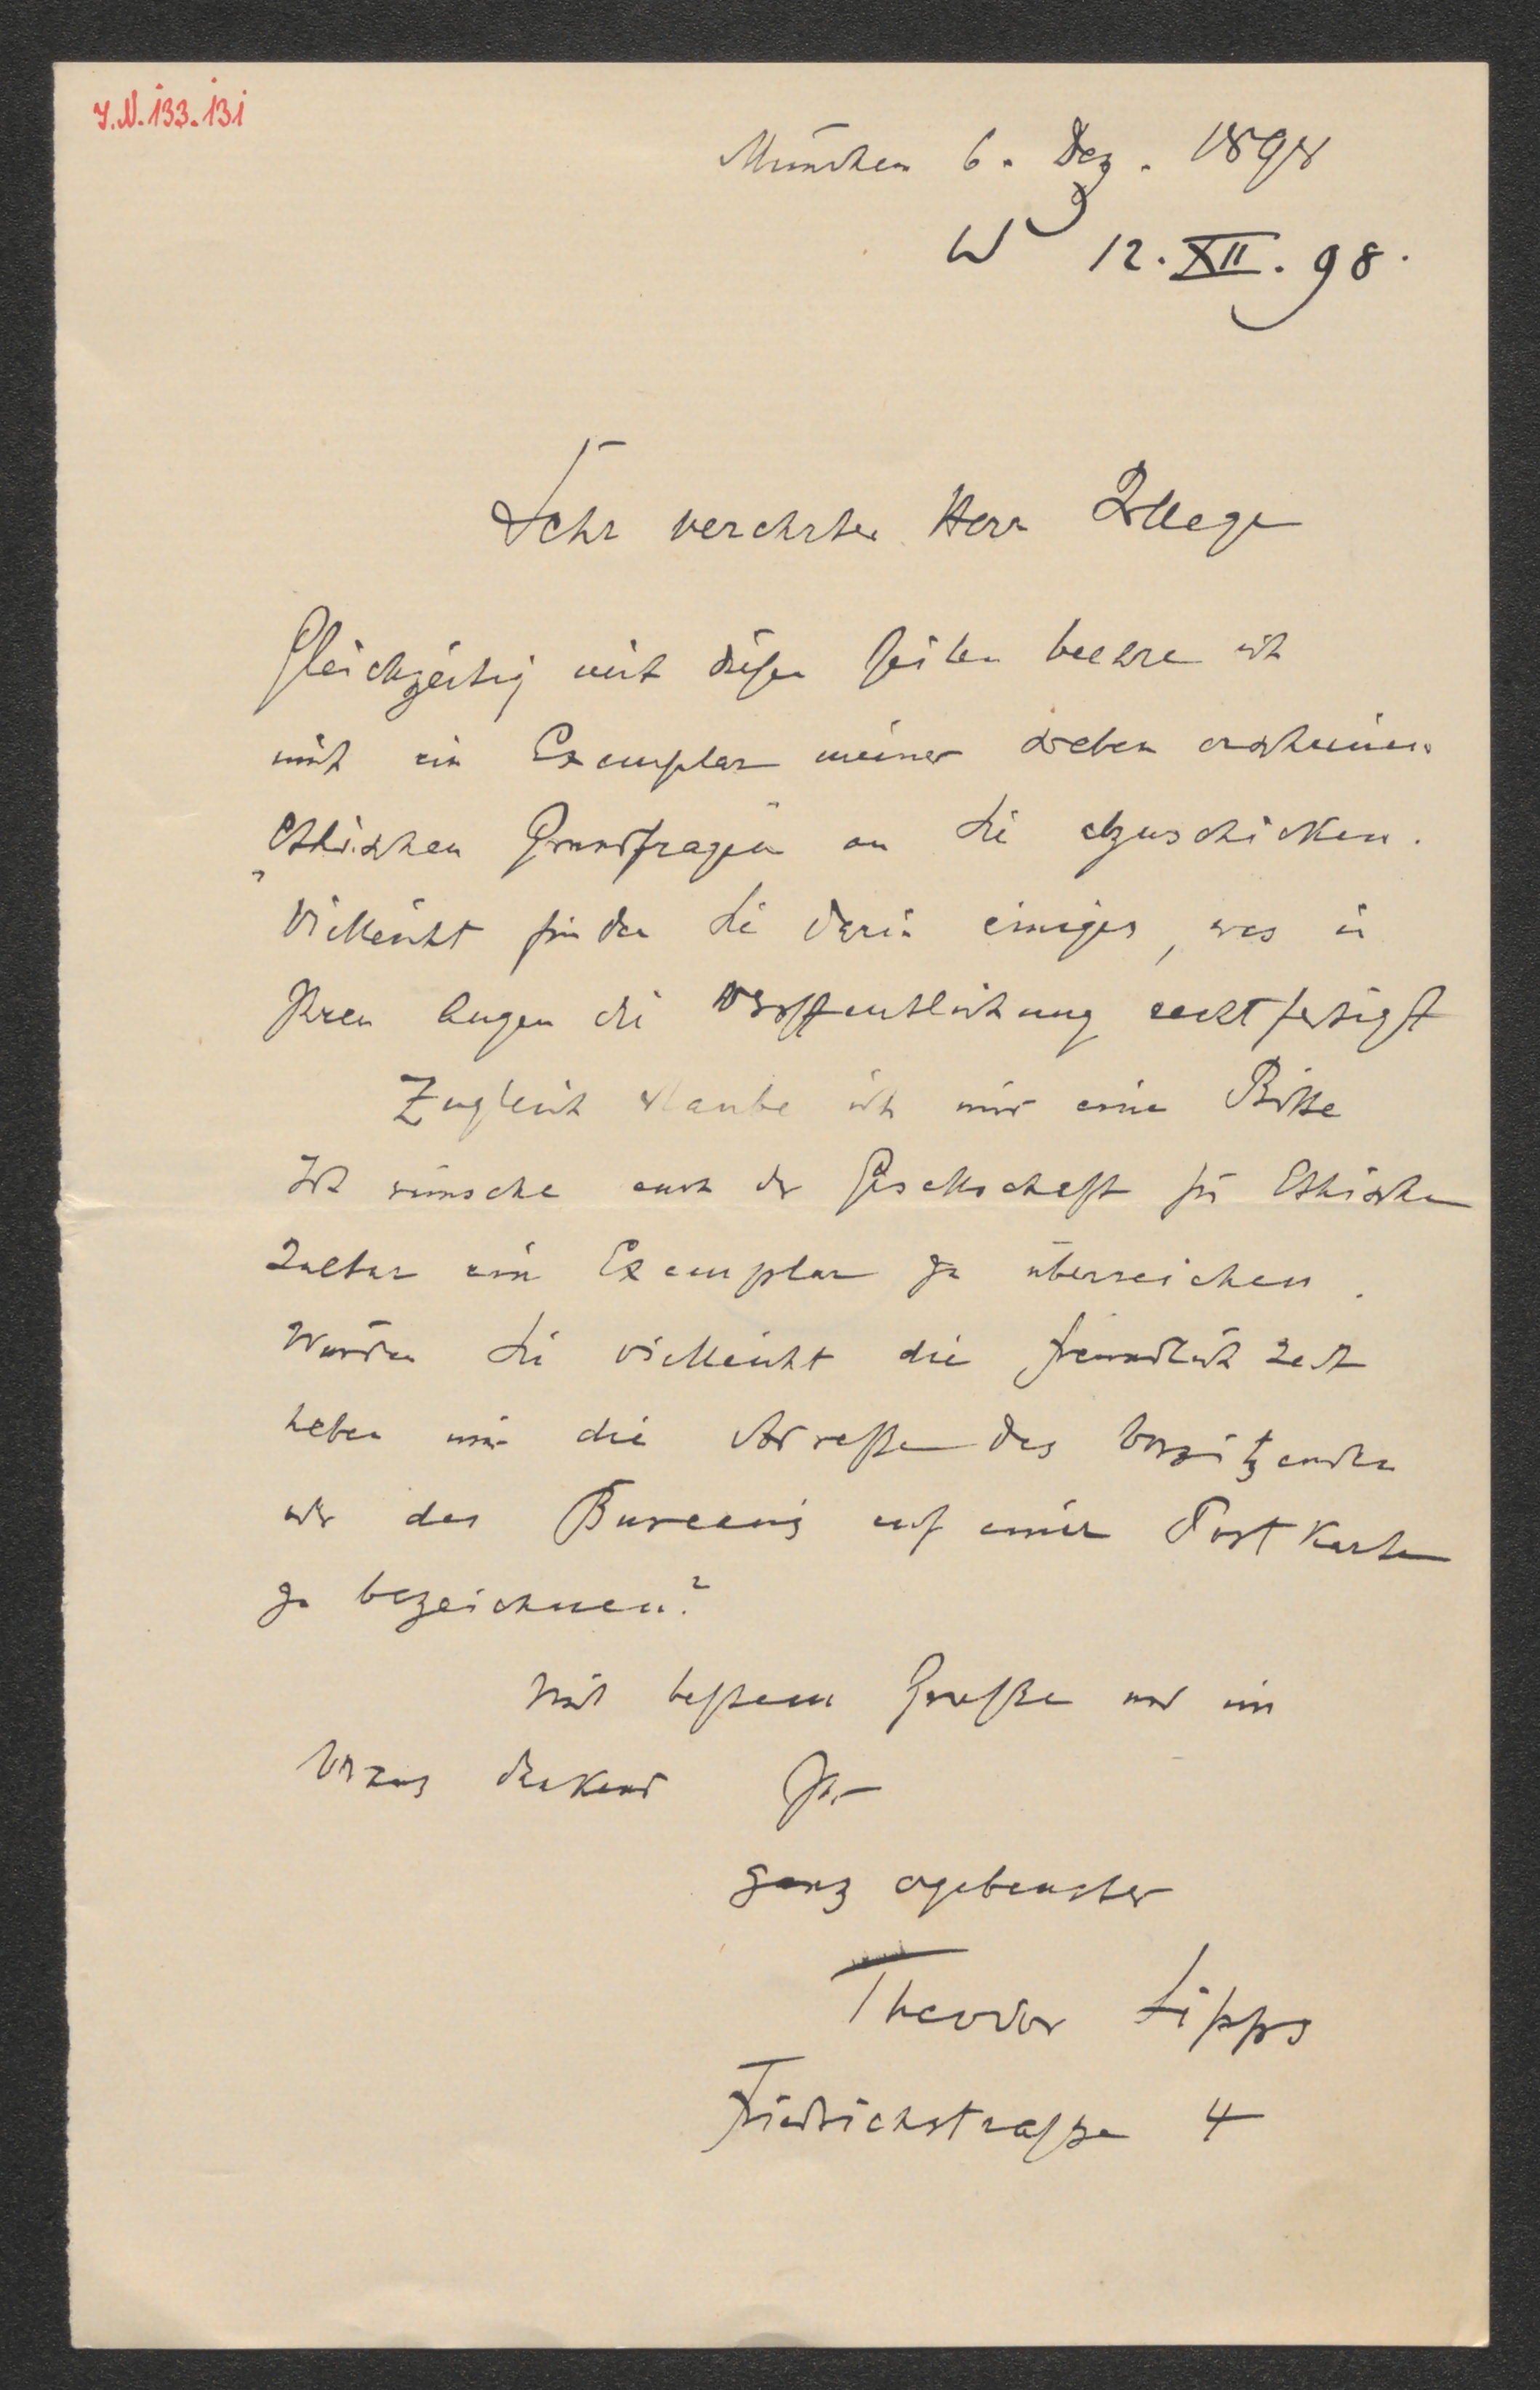 J.N. 133.131
München 6. Dez. 1898
W 12.XII.98.
Sehr verehrter Herr Kollege
Gleichzeitig mit diesen Zeilen beehre ich
mich ein Exemplar meiner soeben erschienen
„Ethischen Grundfragen" an Sie abzuschicken.
Vielleicht finden Sie darin einiges, was in
Ihren Augen die Veröffentlichung rechtfertigt
Zugleich erlaube ich mir eine Bitte
Ich wünsche auch der Gesellschaft für Ethische
Kultur ein Exemplar zu überreichen.
Würden Sie vielleicht die Freundlichkeit
haben mir die Adresse des Vorsitzenden
oder des Bureaus auf einer Postkarte
zu bezeichnen?
Mit bestem Gruße und im
Voraus dankend Ihr
ganz ergebenster
Theodor Lipps
Friedrichstraße 4